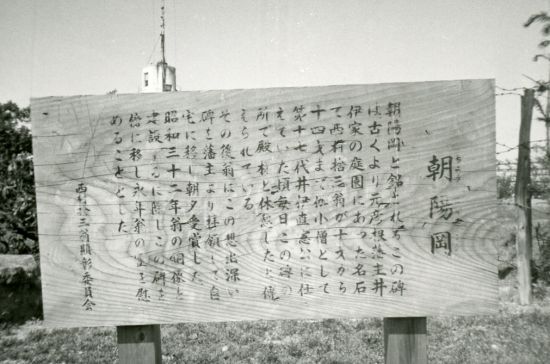 朝陽岡
朝陽岡と銘されたこの碑
は古くより元彦根藩主井
伊家の庭園にあった名石
で西村捨三翁が十才から
十四才まで 小僧として
第十七代井伊直憲公に仕
えていた頃毎日この碑の
所で殿様と休憩したと伝
えられている
その後翁はこの想出深い
碑を藩主より拝領して自
宅に移し朝夕愛賞した
昭和三十二年翁の銅像を
建設するに際しこの碑を
傍に移し永年翁の霊を慰
めることとした
西村捨三翁顕彰委員会